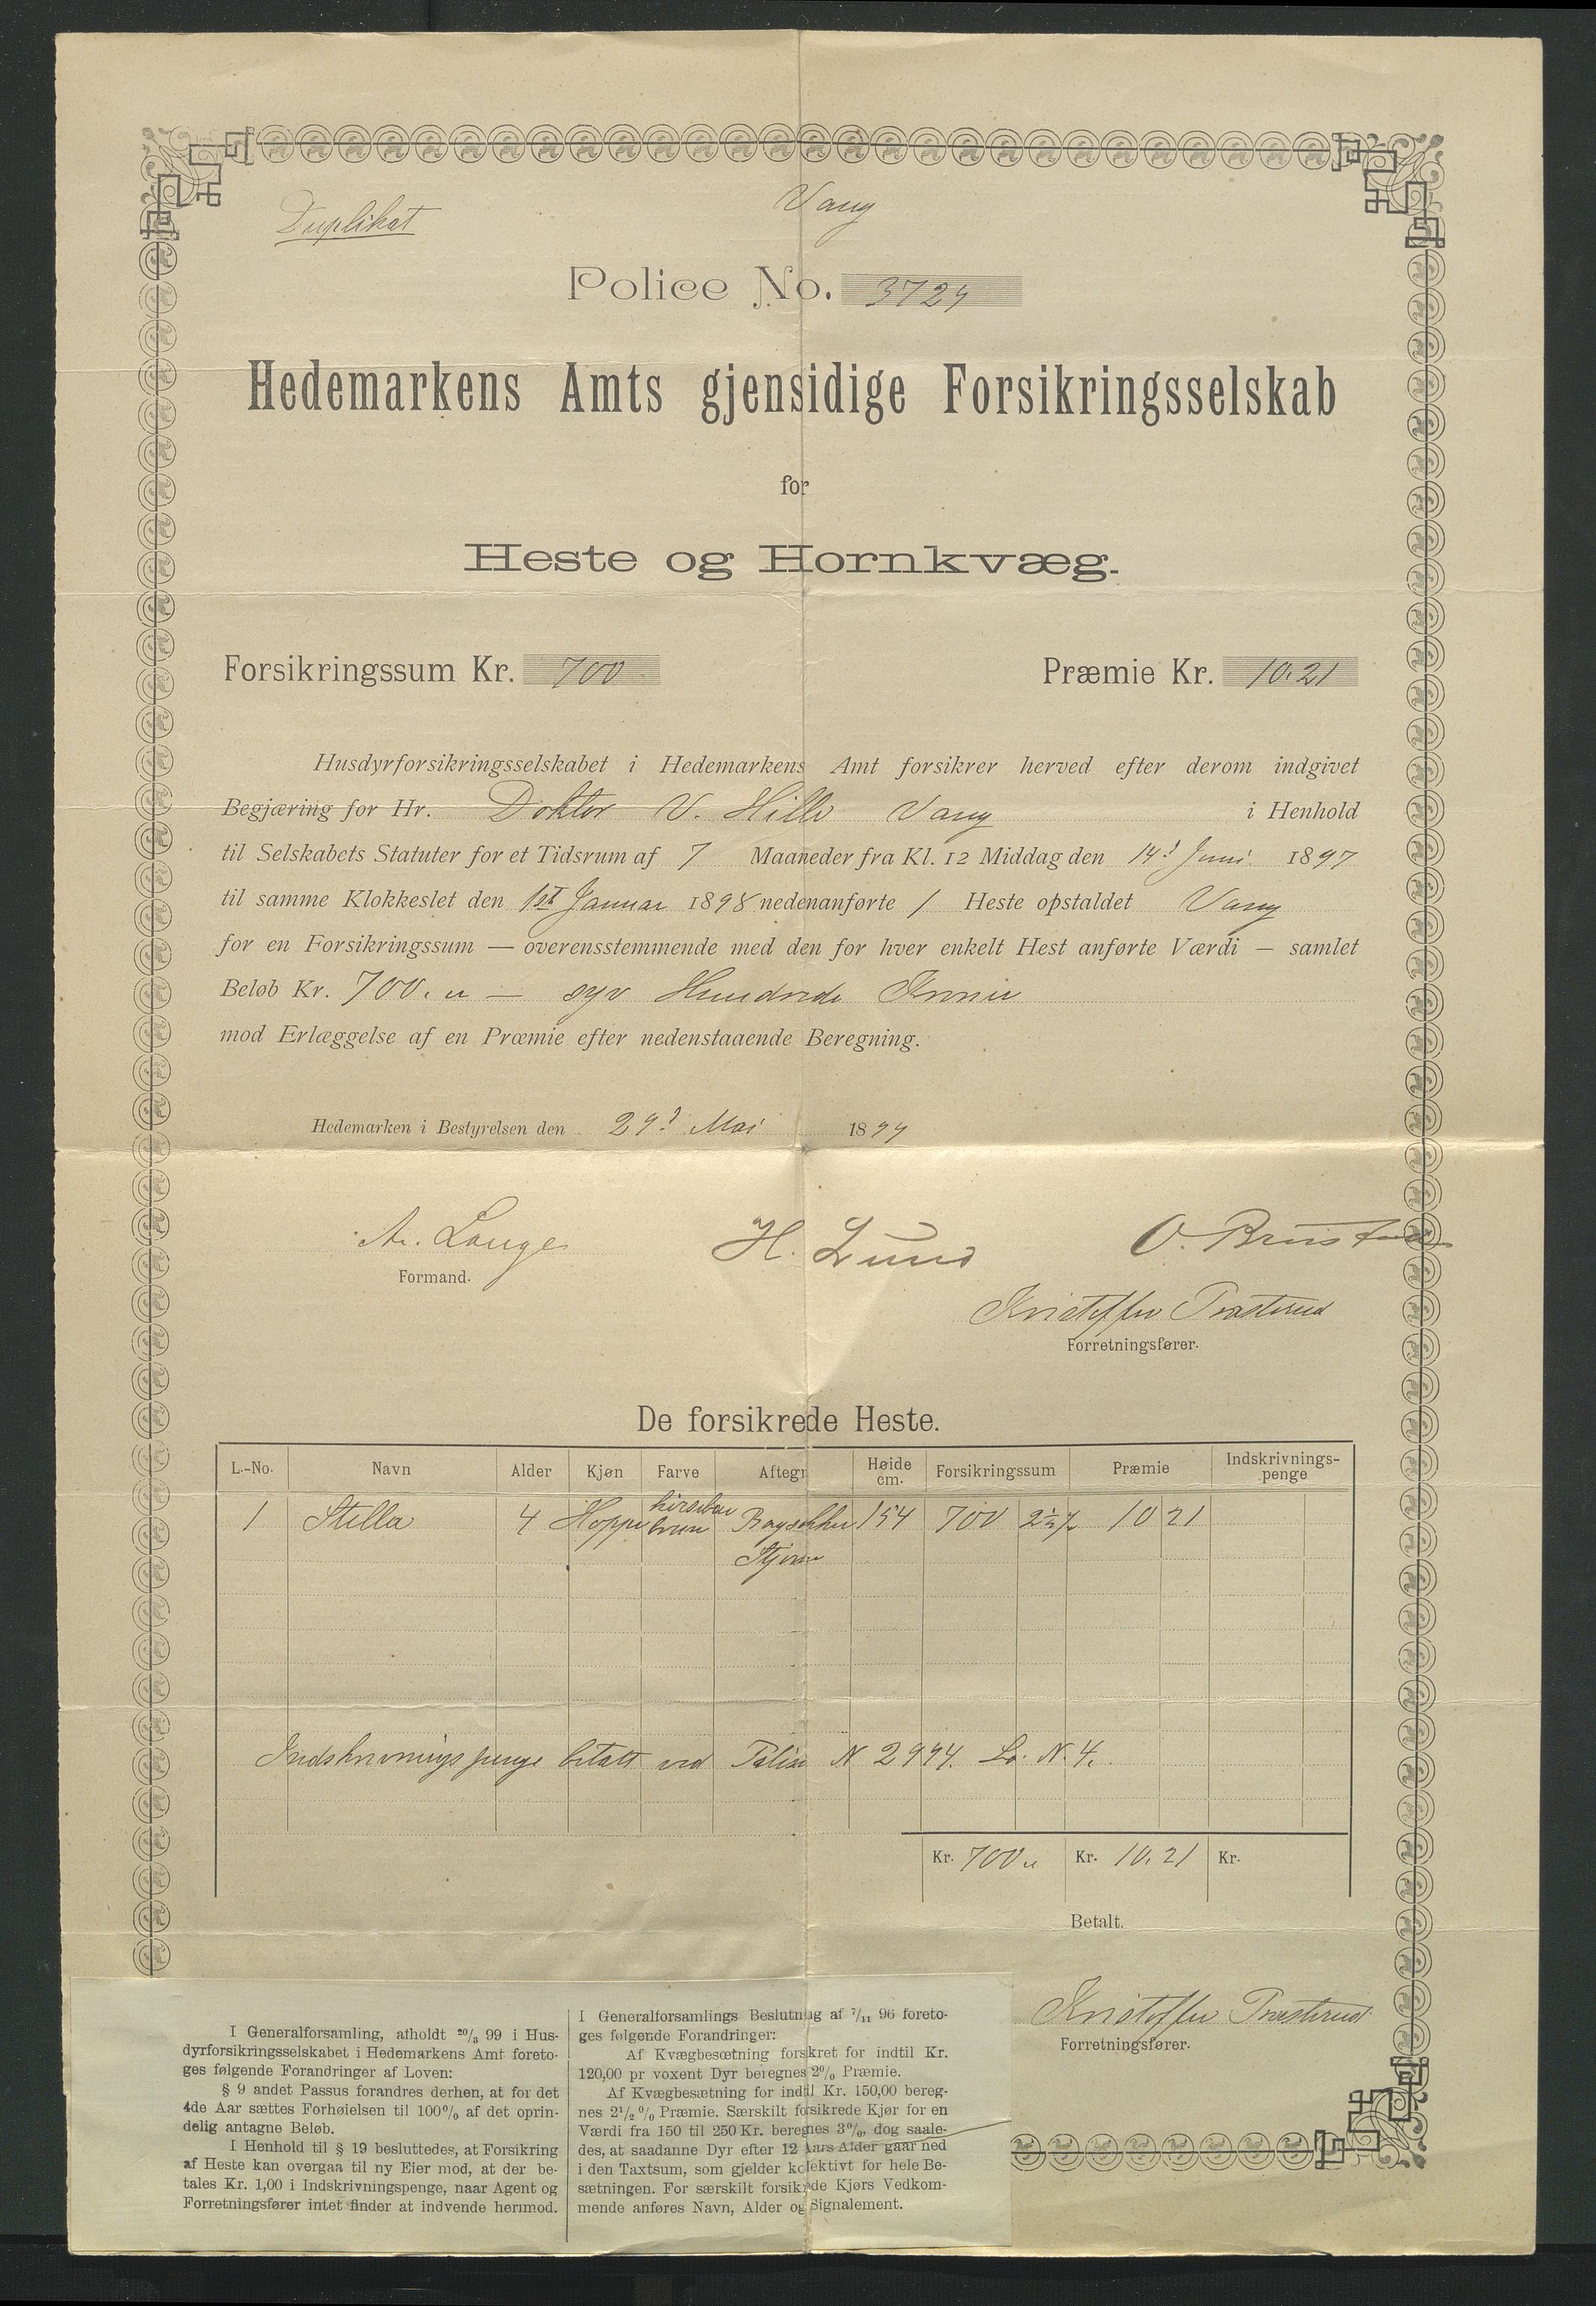 Duplikat
Vang
Police No. 3729
Hedemarkens Amts gjensidige Forsikringsselskab
for
Heste og Hornkvæg.
Forsikringssum Kr. 700
Præmie Kr. 10.21
Husdyrforsikringsselskabet i Hedemarkens Amt forsikrer herved efter derom indgivet
Begjæring for Hr. Doktor V. Hille Vang i Henhold
til Selskabets Statuter for et Tidsrum af 7 Maaneder fra Kl. 12 Middag den 14d Juni 1897
til samme Klokkeslet den 1st Januar 1898 nedenanførte 1 Heste opstaldet Vang
for en Forsikringssum — overensstemmende med den for hver enkelt Hest anførte Værdi — samlet
Beløb Kr. 700. " — syv Hundrede Kroner
mod Erlæggelse af en Præmie efter nedenstaaende Beregning.
Hedemarken i Bestyrelsen den 29d Mai 1899
A. Lange
Formand.
H. Lund
O. Brustad
Kristoffer Træsterud
Forretningsfører.
De forsikrede Heste.
L.-No. Navn Alder Kjøn Farve Aftegn Høide cm. Forsikringssum Præmie Indskrivnings-penge
1 Stella 4 Hoppe brun 154 700 2½% 10 21
Stjerne
Indskrivningspenge betalt ved Polise N 2994. Lø. N. 4.
Kr. 700 " Kr. 10.21 Kr.
Betalt.
Kristoffer Træsterud
Forretningsfører.
I Generalforsamling, afholdt 20/3 99 i Hus-
dyrforsikringsselskabet i Hedemarkens Amt foreto-
ges følgende Forandringer af Loven:
§ 9 andet Passus forandres derhen, at for det
4de Aar sættes Forhøielsen til 100% af det oprin-
delig antagne Beløb.
I Henhold til § 19 besluttedes, at Forsikring
af Heste kan overgaa til ny Eier mod, at der be-
tales Kr. 1,00 i Indskrivningspenge, naar Agent og
Forretningsfører intet finder at indvende hermod.
I Generalforsamlings Beslutning af 7/11 96 foreto-
ges følgende Forandringer:
Af Kvægbesætning forsikret for indtil Kr.
120,00 pr voxent Dyr beregnes 2% Præmie.
Af Kvægbesætning for indtil Kr. 150,00 bereg-
nes 2 1/2 % Præmie. Særskilt forsikrede Kjør for en
Værdi fra 150 til 250 Kr. beregnes 3%, dog saale-
des, at saadanne Dyr efter 12 Aars Alder gaar ned
i den Taxtsum, som gjelder kollektivt for hele Be-
sætningen. For særskilt forsikrede Kjørs Vedkom-
mende anføres Navn, Alder og Signalement.